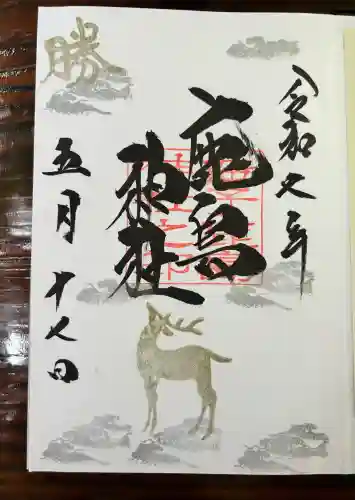 勝
令和 年
鹿島
神社
五月十八日